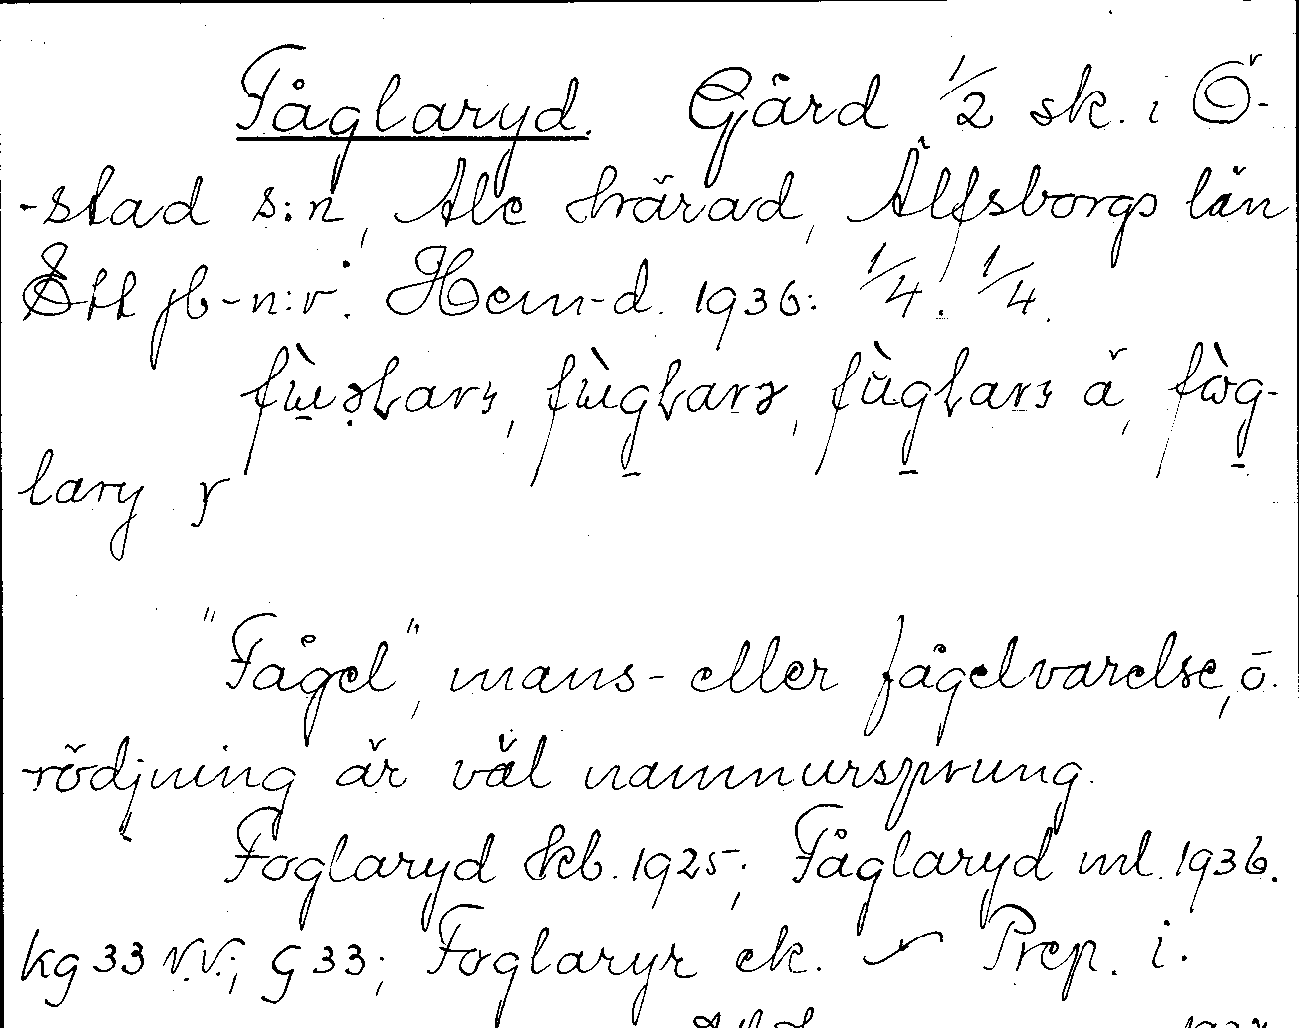 Fåglaryd. Gård 1/2 sk. i Ö-
-stad s:n, Ale härad, Älfsborgs län
Ett jb-n:r. Hem-d. 1936: 1/4. 1/4.
lary
"Fågel", mans- eller fågelvarelse, o.
rödjning är väl namnursprung.
Foglaryd kb. 1925; Fåglaryd ml. 1936.
kg 33 N.V.; G 33; Foglaryr ek. Prep. i.